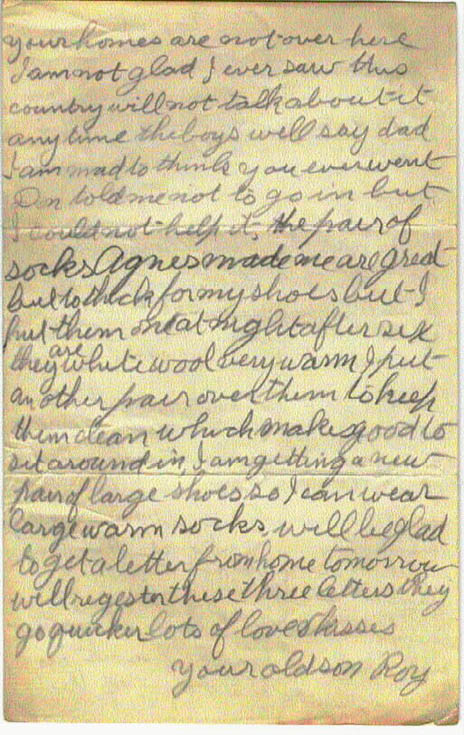 your homes are not over here
I am not glad I ever saw this
country will not talk about it
any time the boys will say dad
I am mad to think you ever went
Dr. told me not to go in but
I could not help it, the pair of
socks Agnes made me are great
but to thick for my shoes but I
put them on at night after six
they are white wool very warm I put
another pair over them to keep
them clean which makes good to
sit around in, I am getting a new
pair of large shoes so I can wear
large warm socks, will be glad
to get a letter from home tomorrow
will regester these three letters they
go quicker lots of love & kisses
your old son Roy